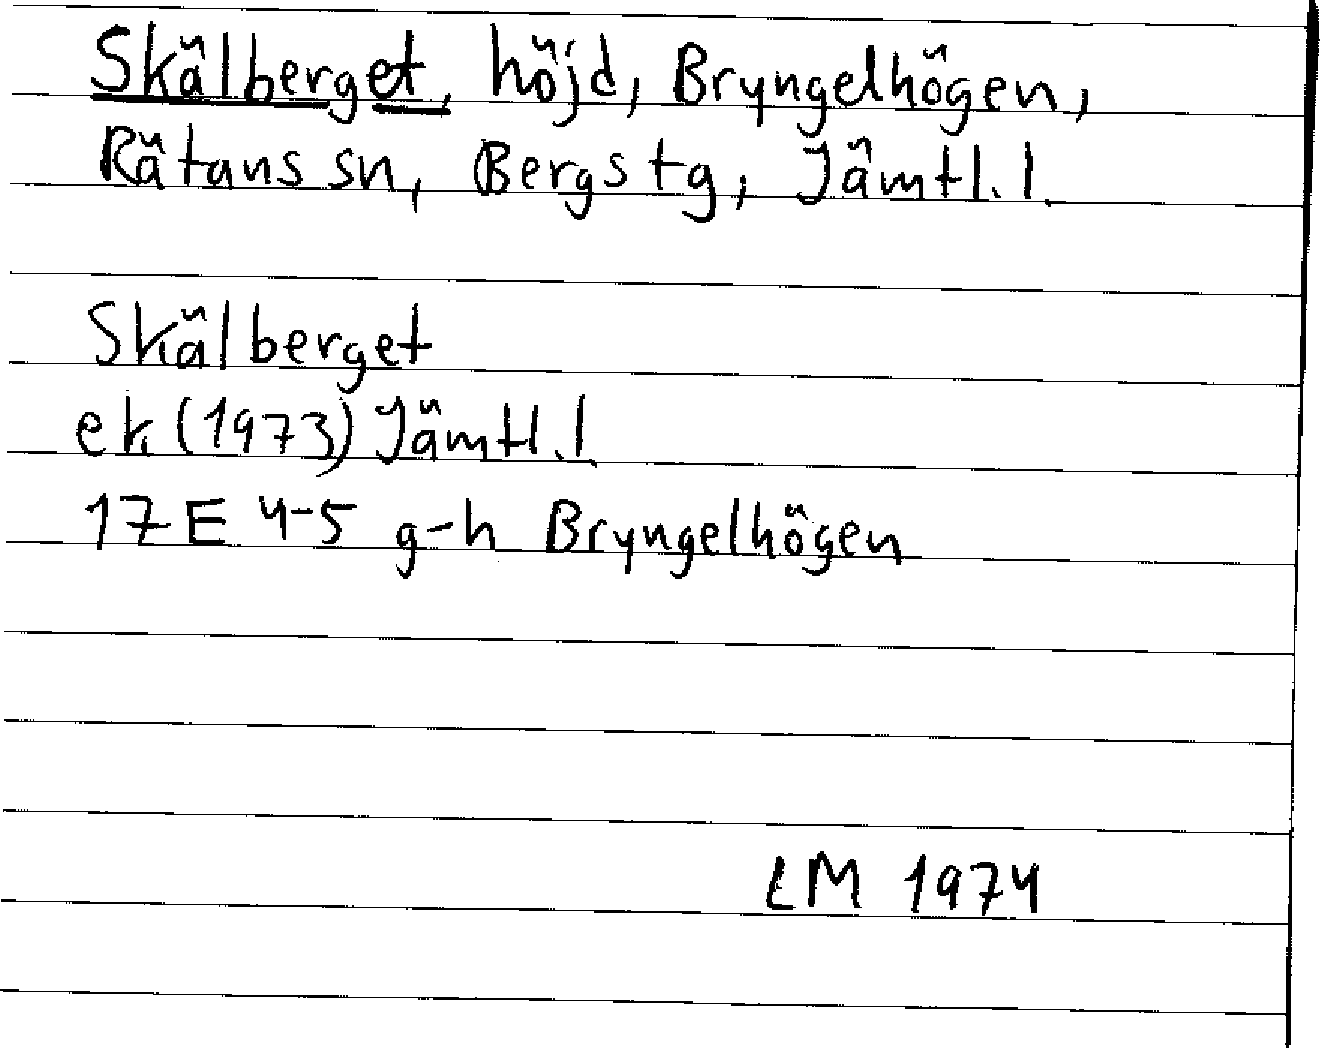 Skälberget, höjd, Bryngelhögen,
Rätans sn, Bergs tg, Jämtl. l.
Skälberget
ek (1973) Jämtl. l.
17 E 4-5 g-h Bryngelhögen
LM 1974